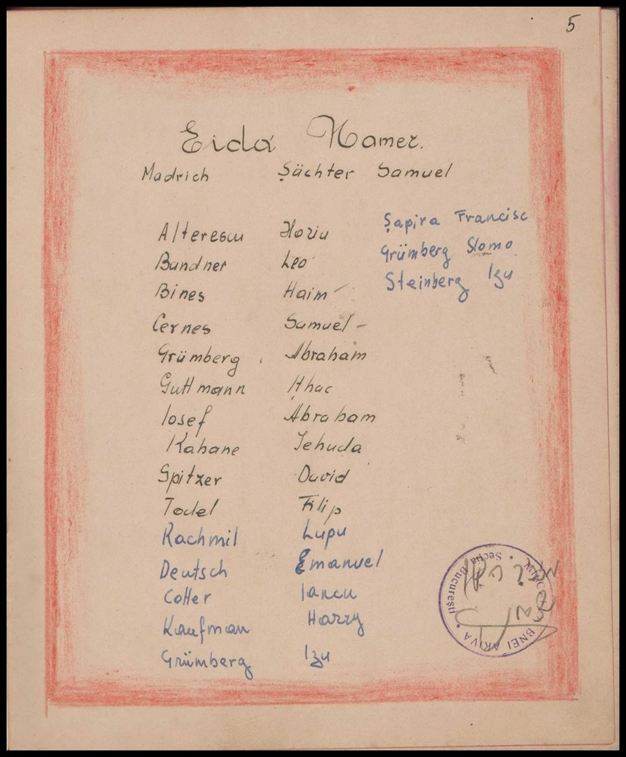 5
Eida Namer.
Madrich Șächter Samuel
Alterescu Horiu
Bundner Leo
Bines Haim
Cernes Samuel
Grümberg Abraham
Guttmann
Iosef Abraham
Kahane Iehuda
Spitzer David
Todel Filip
Rachmil Lupu
Deutsch Emanuel
Cotter Iancu
Kaufman Harry
Grümberg Izu
Șapira Francisc
Grümberg Slomo
Steinberg Izu
BNEI AKIVA • Secția București •